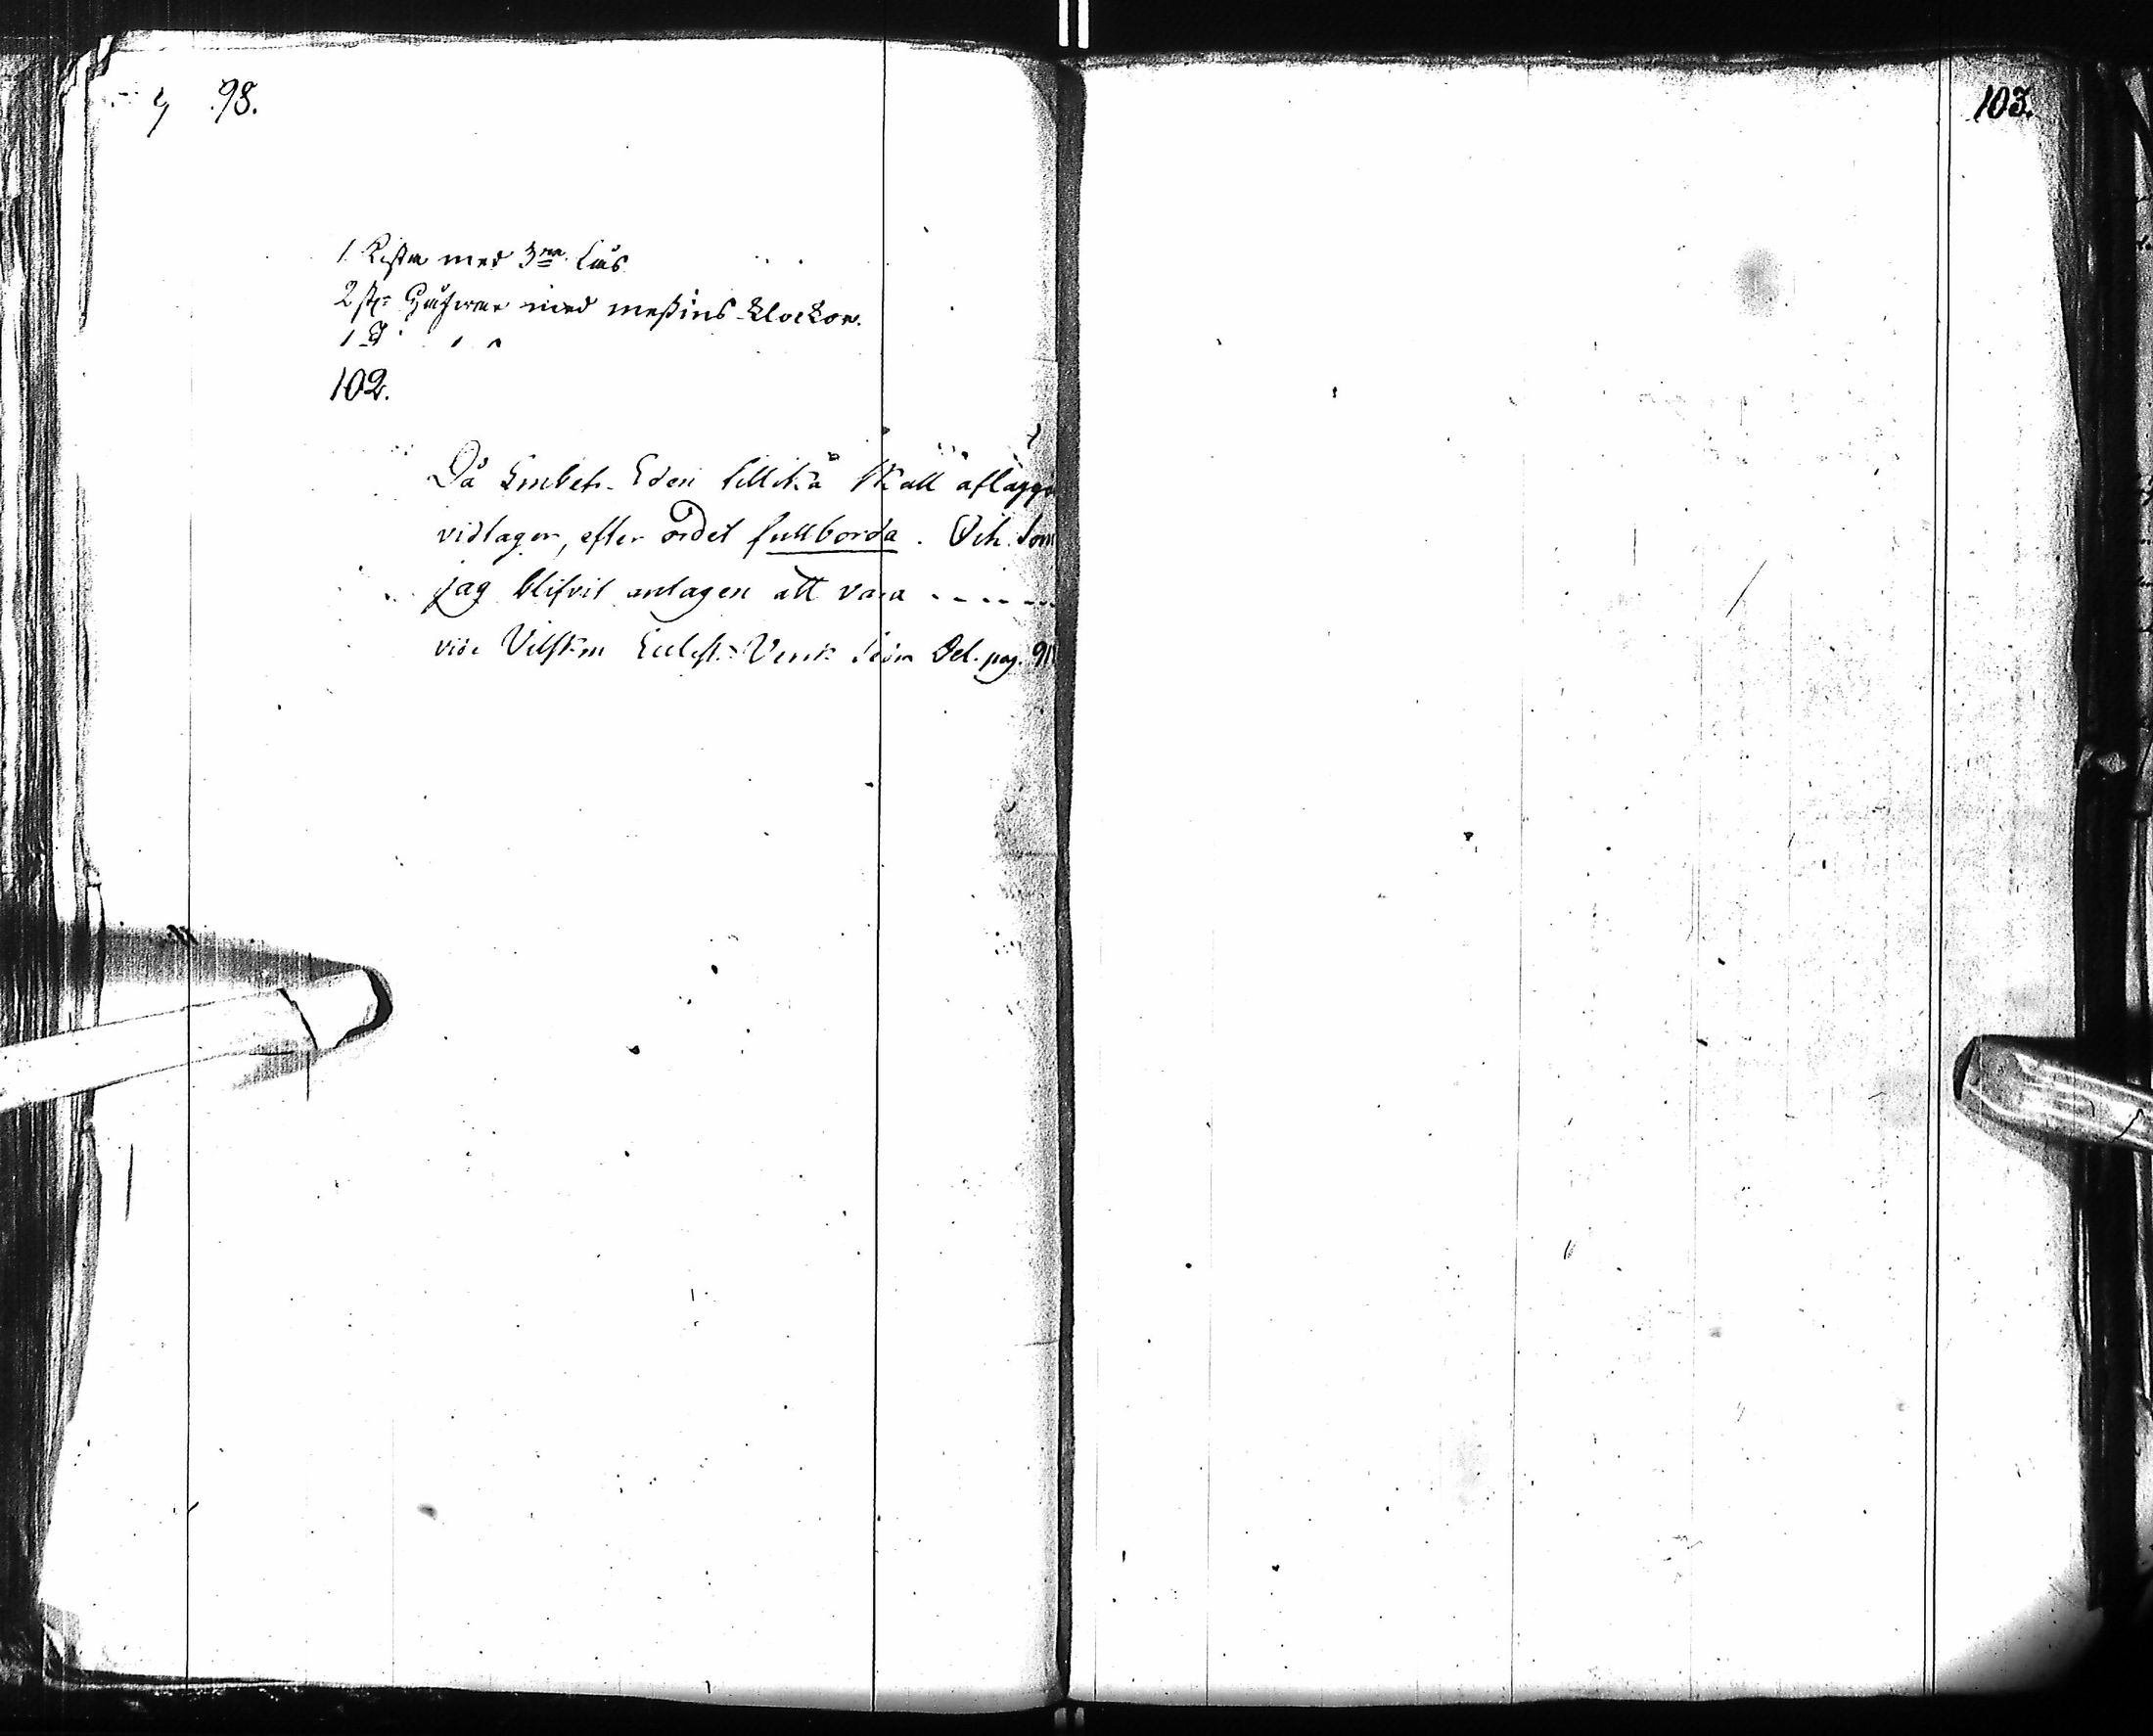 98.
1 Kista med 3ne Lås
2 st. Håfwar med messins klockor.
1 D°
102.
Då Embets-Eden tillika skall aflägga
vidtager, efter ordet fullborda. Och som
jag blifvit antagen att vara - - - - -
vide Eccles. Verk Del. pag. 91
103.